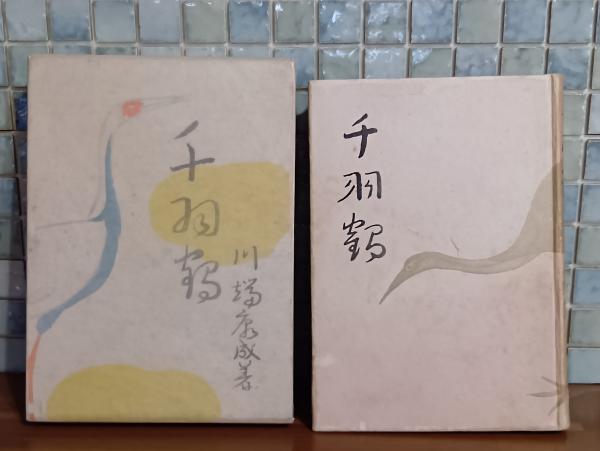 千羽鶴
川端康成著
千羽鶴